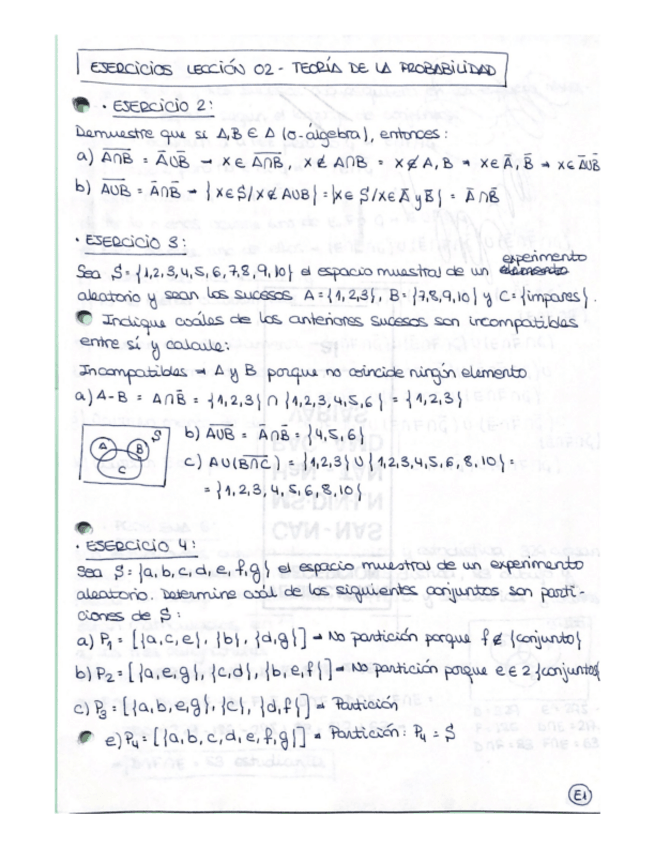 EJERCICIOS LECCIÓN 02 - TEORÍA DE LA PROBABILIDAD
· EJERCICIO 2:
Demuestre que si A, B ∈ Δ (σ-álgebra), entonces:
a) A̅∩̅B̅ = A̅∪B̅ → x ∈ A̅∩̅B̅, x ∉ A∩B = x ∉ A, B → x ∈ A̅, B̅ → x ∈ A̅∪B̅
b) A̅∪̅B̅ = A̅∩B̅ → {x∈S/x∉A∪B} = {x∈S/x∈A̅ y B̅} = A̅∩B̅
· EJERCICIO 3:
experimento
Sea S = {1,2,3,4,5,6,7,8,9,10} el espacio muestral de un elemento
aleatorio y sean los sucesos A = {1,2,3}, B = {7,8,9,10} y C = {impares}.
Indique cuáles de los anteriores sucesos son incompatibles
entre sí y calcule:
Incompatibles → A y B porque no coincide ningún elemento
a) A-B = A∩B̅ = {1,2,3} ∩ {1,2,3,4,5,6} = {1,2,3}
A B C S
b) A̅∪̅B̅ = A̅∩B̅ = {4,5,6}
c) A∪(B̅∩̅C̅) = {1,2,3} ∪ {1,2,3,4,5,6,8,10} =
= {1,2,3,4,5,6,8,10}
· EJERCICIO 4:
Sea S = {a,b,c,d,e,f,g} el espacio muestral de un experimento
aleatorio. Determine cuál de los siguientes conjuntos son parti-
ciones de S:
a) P₁ = [{a,c,e}, {b}, {d,g}] → No partición porque f ∉ {conjunto}
b) P₂ = [{a,e,g}, {c,d}, {b,e,f}] → No partición porque e ∈ 2 {conjuntos}
c) P₃ = [{a,b,e,g}, {c}, {d,f}] → Partición
e) P₄ = [{a,b,c,d,e,f,g}] → Partición: P₄ = S
E1